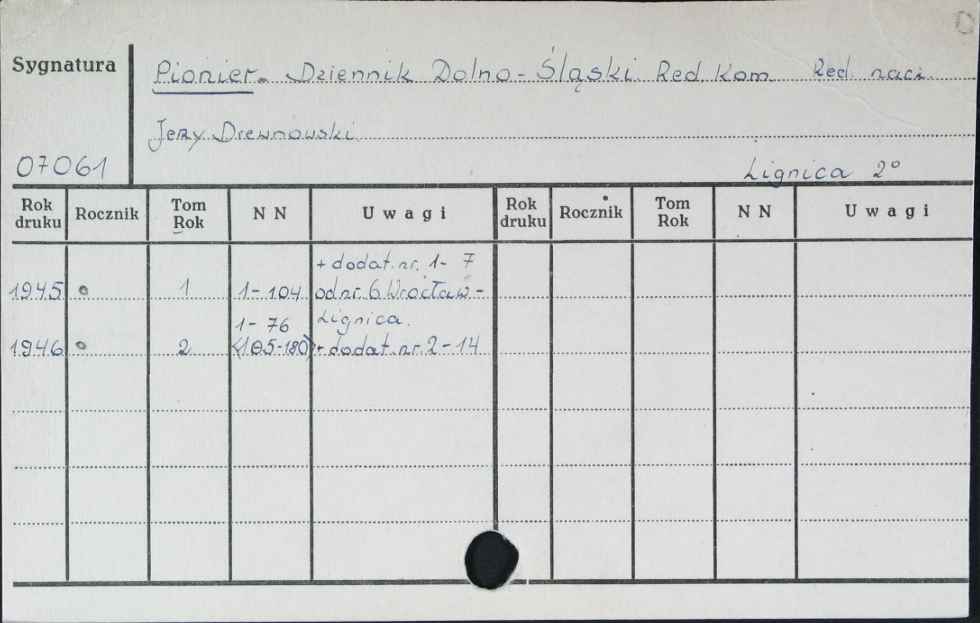 Sygnatura
Pionier. Dziennik Dolno-Śląski. Red. Kom. Red. nacz.
Jerzy Drewnowski
07061
Lignica 2°
Rok druku Rocznik Tom Rok NN Uwagi Rok druku Rocznik Tom Rok NN Uwagi
+ dodat. nr. 1-7
1945 1 1-104 od nr. 6 Wrocław-
1-76 Lignica.
1946 2 <105-180> + dodat. nr. 2-14